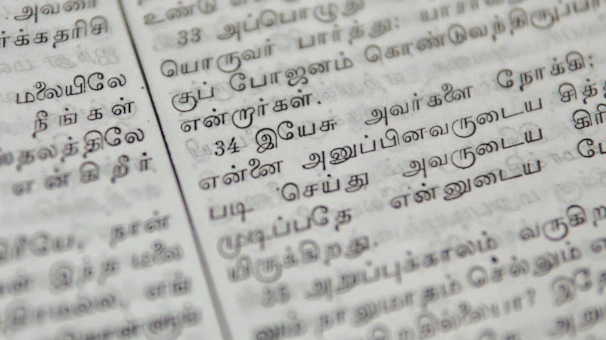 அவனை
ர்க்கதரிசி
மலையிலே
நீங்கள்
ஸ்தலத்திலே
என்கிறீர்
நான்
இந்த மலை
உண்டு
33 அப்பொழுது
யொருவர் பார்த்து:
குப் போஜனம் கொண்டுவந்திருப்பா
என்றார்கள்.
34 இயேசு அவர்களை நோக்கி:
என்னை அனுப்பினவருடைய சித்த
படி செய்து அவருடைய கிரி
முடிப்பதே என்னுடைய போ
யிருக்கிறது.
35 அறுப்புக்காலம் வருகிற
னும் நாலுமாதம் செல்லும்
இதோ